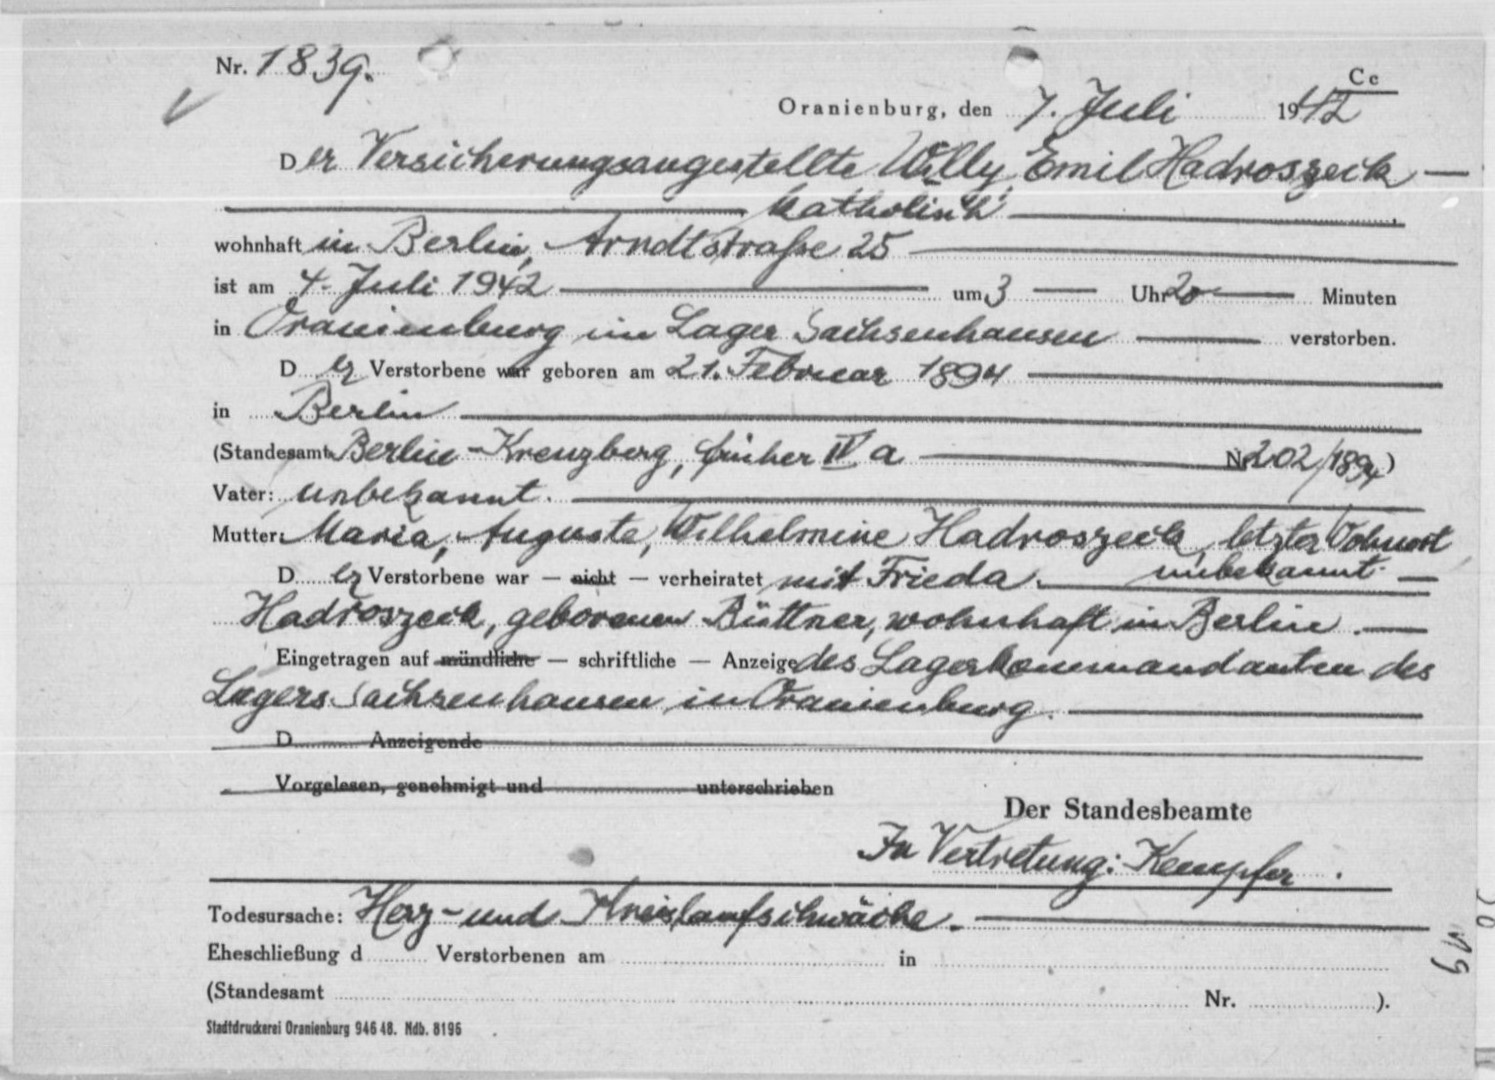 Nr. 1839.
Cc
Oranienburg, den 7. Juli 1942
Der Versicherungsangestellte Willy Emil Hadroszeck —
katholisch
wohnhaft in Berlin, Arndtstraße 25
ist am 4. Juli 1942 — um 3 — Uhr 20 — Minuten
in Oranienburg im Lager Sachsenhausen — verstorben.
D er Verstorbene war geboren am 21. Februar 1894
in Berlin
(Standesamt Berlin-Kreuzberg, früher IV a — Nr. 202/1894)
Vater: unbekannt.
Mutter: Maria, Auguste, Wilhelmine Hadroszeck, letzter Wohnort
unbekannt. —
D er Verstorbene war — nicht — verheiratet mit Frieda
Hadroszeck, geborenen Büttner, wohnhaft in Berlin. —
Eingetragen auf mündliche — schriftliche — Anzeige des Lagerkommandanten des
Lagers Sachsenhausen in Oranienburg.
D Anzeigende
Vorgelesen, genehmigt und unterschrieben
Der Standesbeamte
In Vertretung: Kempfer.
Todesursache: Herz- und Kreislaufschwäche.
Eheschließung d Verstorbenen am in
(Standesamt Nr. ).
Stadtdruckerei Oranienburg 946 48. Ndb. 8196